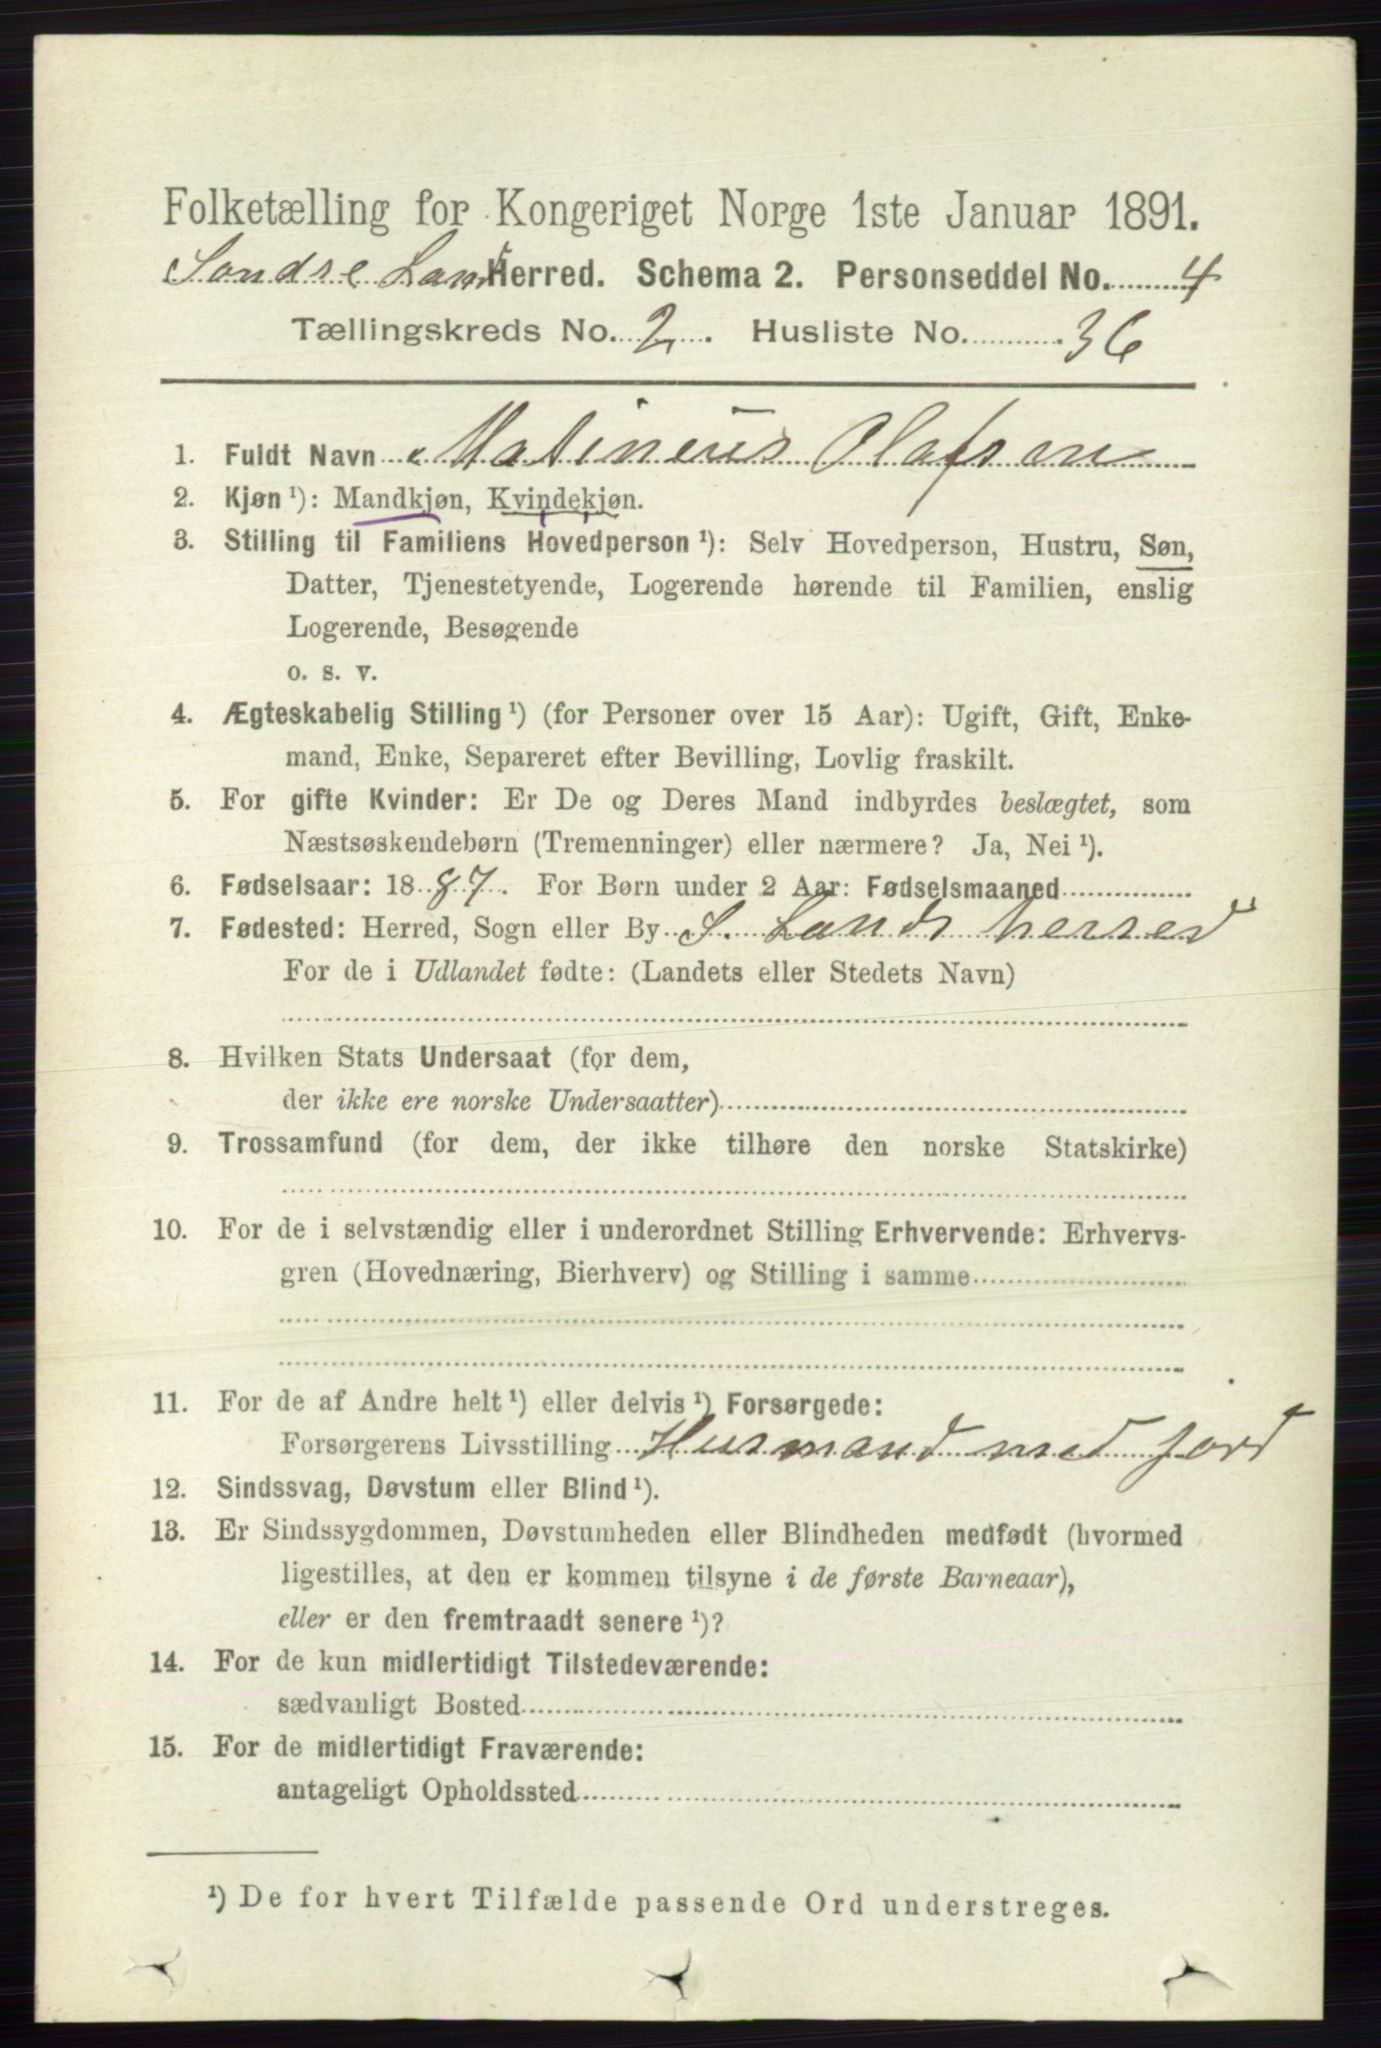 Folketælling for Kongeriget Norge 1ste Januar 1891.
Søndre Land Herred. Schema 2. Personseddel No. 4
Tællingskreds No. 2. Husliste No. 36
1. Fuldt Navn Matineus Olafsen
2. Kjøn ¹): Mandkjøn, Kvindekjøn.
3. Stilling til Familiens Hovedperson ¹): Selv Hovedperson, Hustru, Søn,
Datter, Tjenestetyende, Logerende hørende til Familien, enslig
Logerende, Besøgende
o. s. v.
4. Ægteskabelig Stilling ¹) (for Personer over 15 Aar): Ugift, Gift, Enke-
mand, Enke, Separeret efter Bevilling, Lovlig fraskilt.
5. For gifte Kvinder: Er De og Deres Mand indbyrdes beslægtet, som
Næstsøskendebørn (Tremenninger) eller nærmere? Ja, Nei ¹).
6. Fødselsaar: 1887. For Børn under 2 Aar: Fødselsmaaned
7. Fødested: Herred, Sogn eller By S. Lands herred
For de i Udlandet fødte: (Landets eller Stedets Navn)
8. Hvilken Stats Undersaat (for dem,
der ikke ere norske Undersaatter)
9. Trossamfund (for dem, der ikke tilhøre den norske Statskirke)
10. For de i selvstændig eller i underordnet Stilling Erhvervende: Erhvervs-
gren (Hovednæring, Bierhverv) og Stilling i samme
11. For de af Andre helt ¹) eller delvis ¹) Forsørgede:
Forsørgerens Livsstilling Husmand med jord
12. Sindssvag, Døvstum eller Blind ¹).
13. Er Sindssygdommen, Døvstumheden eller Blindheden medfødt (hvormed
ligestilles, at den er kommen tilsyne i de første Barneaar),
eller er den fremtraadt senere ¹)?
14. For de kun midlertidigt Tilstedeværende:
sædvanligt Bosted
15. For de midlertidigt Fraværende:
antageligt Opholdssted
¹) De for hvert Tilfælde passende Ord understreges.